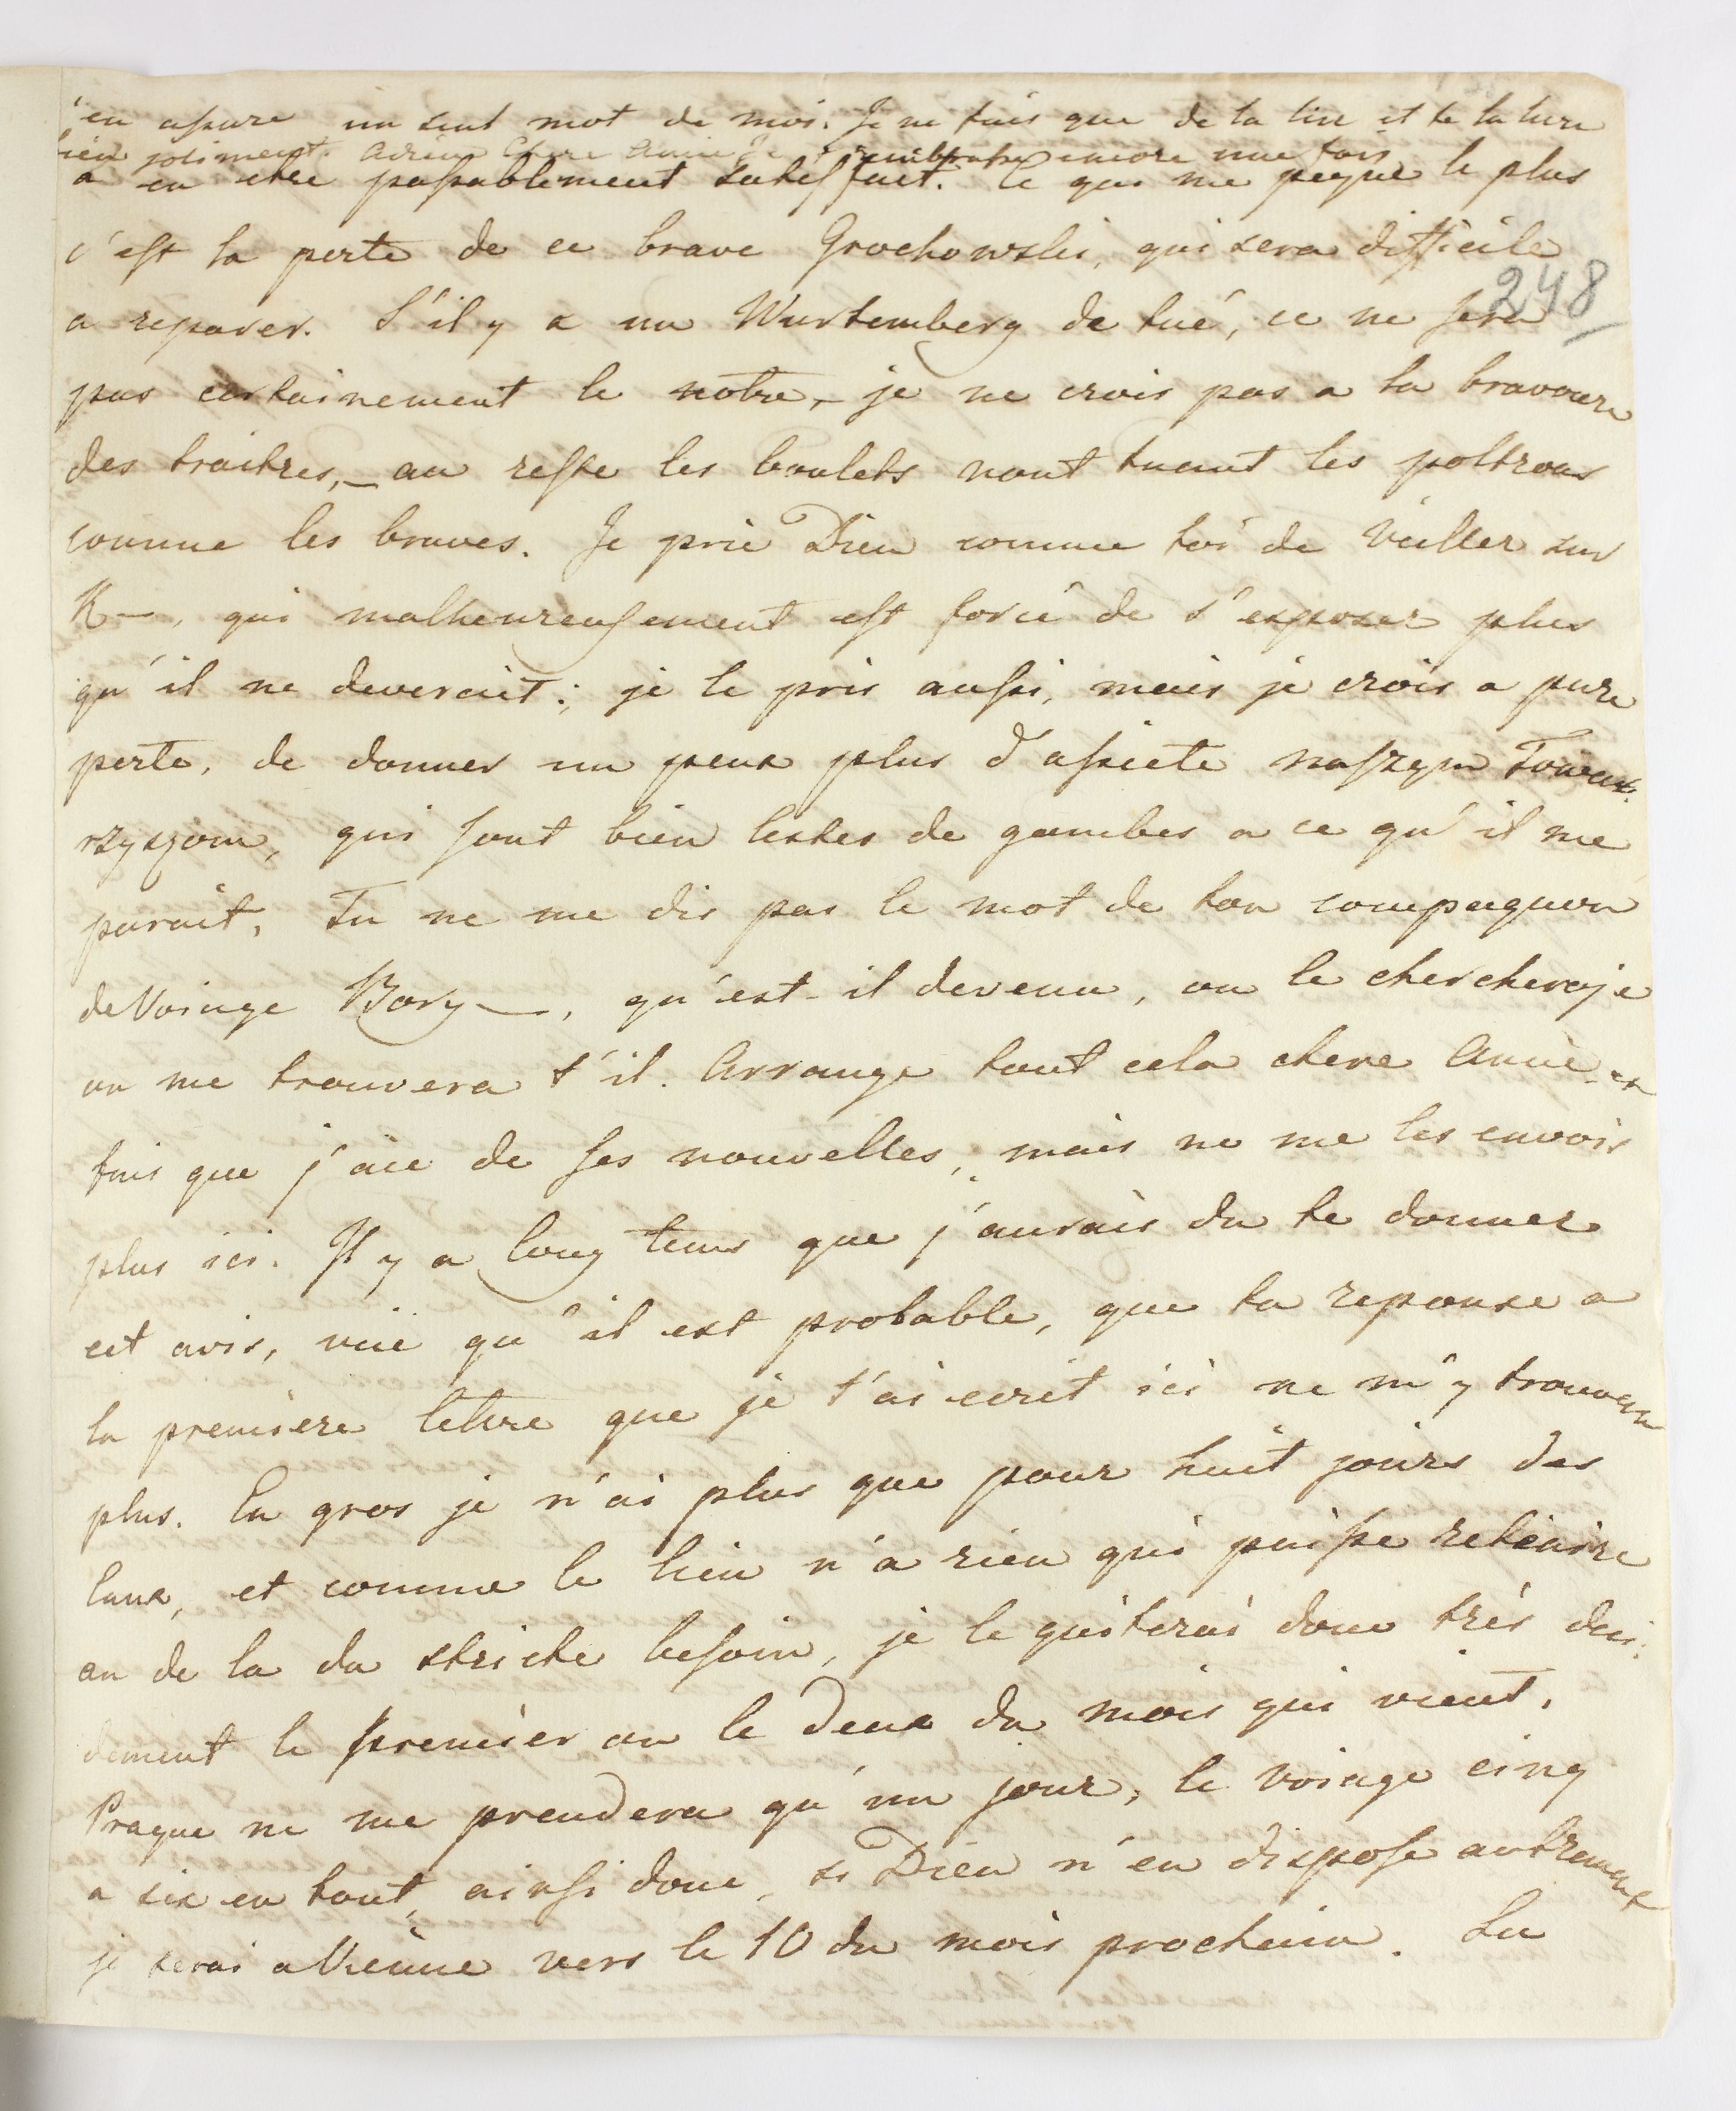 en assure un seul mot de moi. Je ne fais que de la lire et te la livre
bien poliment. Adieu Chere Amie Je t'embrasse encore une fois
a en etre passablement satisfait. Ce qui me peyne le plus
c'est la perte de ce brave Grochowski, qui sera difficile
248
a reparer. S'il y a un Wurtemberg de tué, ce ne sera
pas certainement le notre, je ne crois pas a la bravoure
des traitres, – au reste les boulets vont tuant les poltrons
comme les braves. Je prie Dieu comme toi de veiller sur
K–, qui malheureusement est forcé de s'exposer plus
qu'il ne deverait; je le pris aussi, mais je crois a pure
perte, de donner un peux plus d'assiete naszym Towa-
rzyszom, qui sont bien lestes de gambes a ce qu'il me
parait. Tu ne me dis pas le mot de ton compagnon
de Voiage Bory–, qu'est-il devenu, ou le chercheraje
ou me trouvera t'il. Arrange tout cela chere Amie et
fais que j'aie de ses nouvelles, mais ne me les envois
plus ici. Il y a long tems que j'aurais du te donner
cet avis, vüe qu'il est probable, que ta reponse a
la premiere lettre que je t'ai ecrit ici ne m'y trouvera
plus. En gros je n'ai plus que pour huit jours des
eaux, et comme le lieu n'a rien qui puisse retenire
au de la du stricte besoin, je le quiterai donc très deci-
dement le premier ou le deux du mois qui vient.
Prague ne me prendera qu'un jour, le voiage cinq
a six en tout, ainsi donc, si Dieu n'en dispose autrement
je serai a Vienne vers le 10 du mois prochain. La